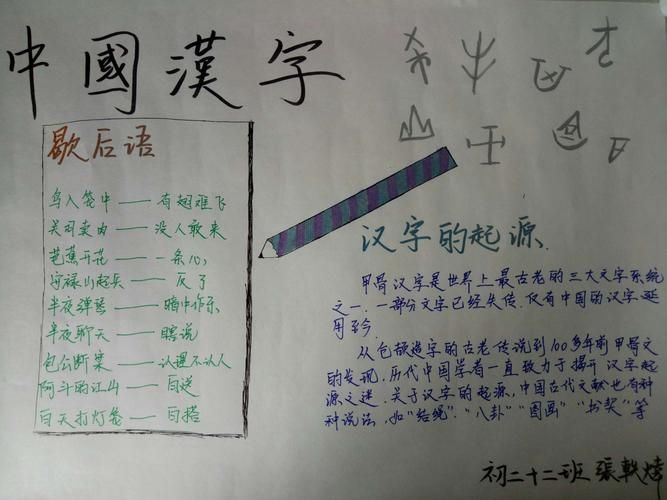 中國漢字
歇后语
鸟入笼中——有翅难飞
关羽卖肉——没人敢来
芭蕉开花——一条心
安禄山起兵——反了
半夜弹琴——暗中作乐
半夜聊天——瞎说
包公断案——认理不认人
阿斗的江山——白送
白天打灯笼——白搭
汉字的起源
甲骨汉字是世界上最古老的三大文字系统
之一.一部分文字已经失传.仅有中国的汉字延
用至今
从仓颉造字的古老传说到100多年前甲骨文
的发现,历代中国学者一直致力于揭开汉字起
源之迷.关于汉字的起源,中国古代文献也有种
种说法,如"结绳"."八卦""图画""书契"等
初二十二班 張軼